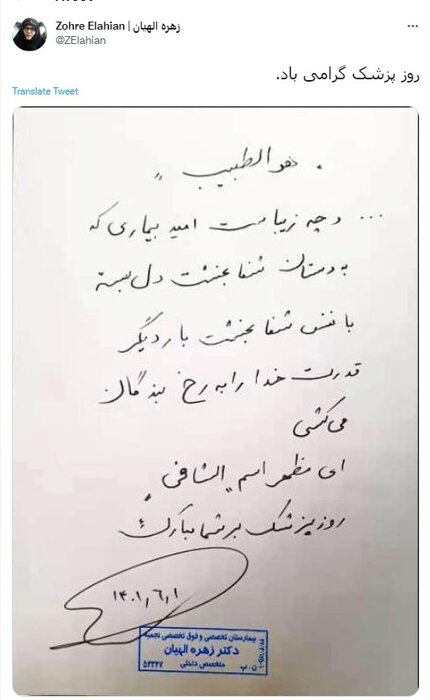 Zohre Elahian | زهره الهیان
@ZElahian
روز پزشک گرامی باد.
Translate Tweet
" هو الطبیب "
... و چه زیباست امید بیماری که
به دستان شفا بخشت دل بسته
با نفس شفا بخشت بار دیگر
قدرت خدا را به رخ بندگان
می کشی
ای مظهر اسم "الشافی"
روز پزشک بر شما مبارک
۱۴۰۱,۶,۱
بیمارستان تخصصی و فوق تخصصی نجمیه
دکتر زهره الهیان
متخصص داخلی
ن.پ ۵۲۳۲۷